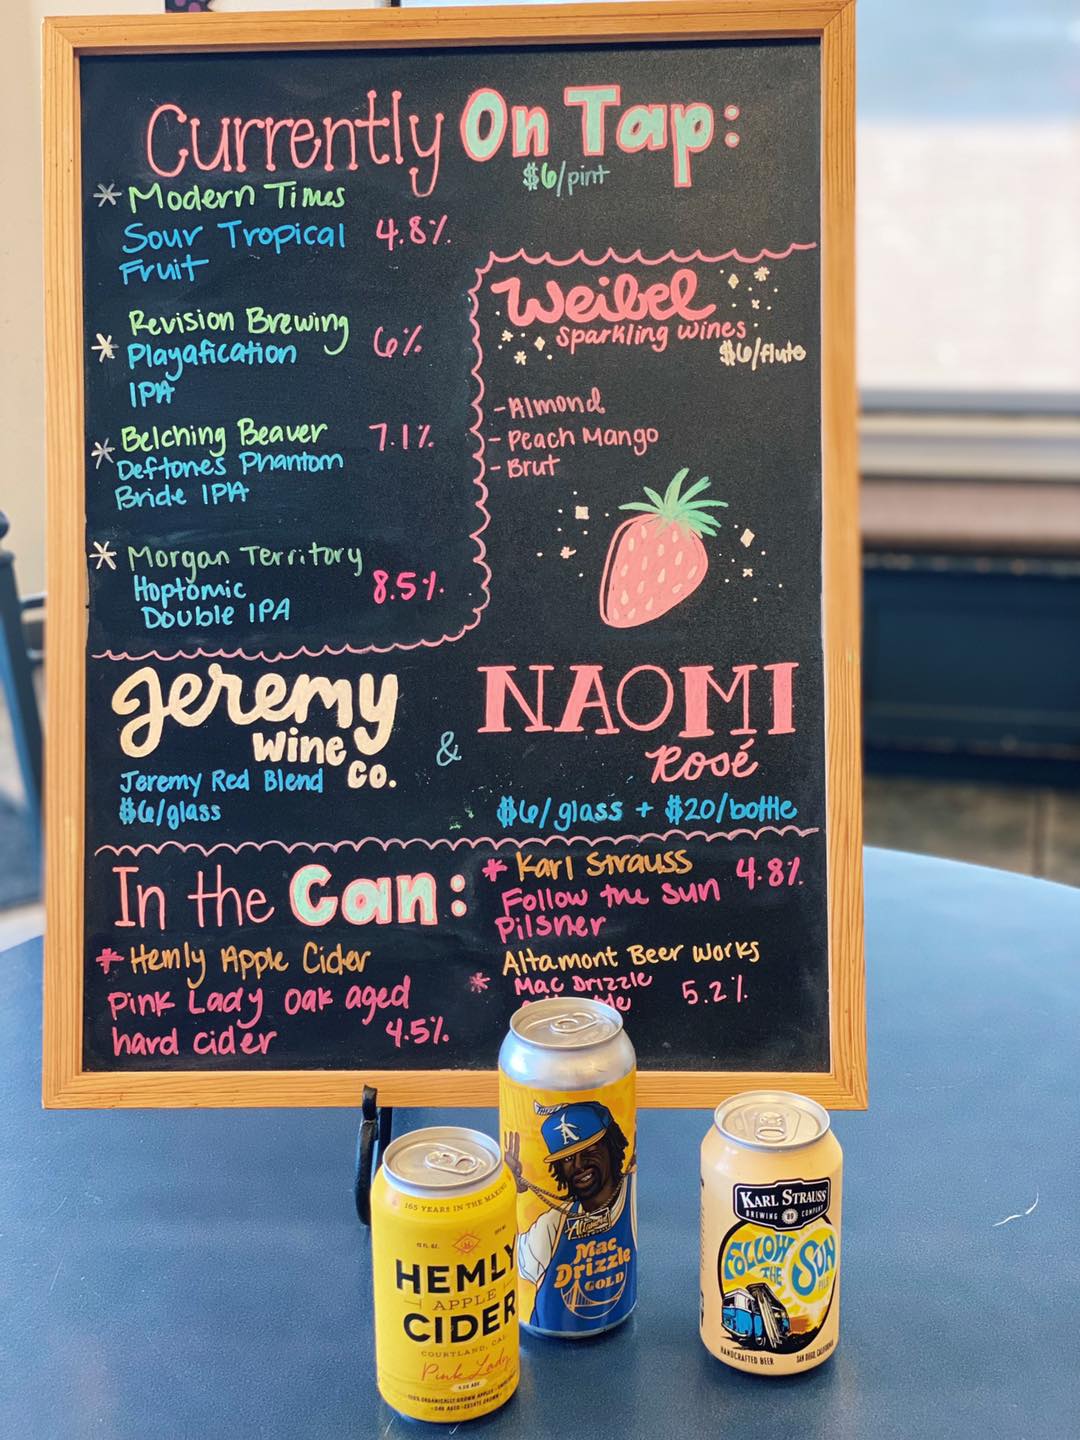 Currently On Tap:
$6/pint
* Modern Times
Sour Tropical 4.8%
Fruit
Revision Brewing
* Playafication 6%
IPA
* Belching Beaver 7.1%
Deftones Phantom
Bride IPA
* Morgan Territory
Hoptomic 8.5%
Double IPA
Weibel
Sparkling Wines
$6/flute
- Almond
- Peach Mango
- Brut
Jeremy
Wine Co.
Jeremy Red Blend
$6/glass
&
NAOMI
Rosé
$6/glass + $20/bottle
In the Can:
* Hemly Apple Cider
Pink Lady Oak aged
hard cider 4.5%
* Karl Strauss 4.8%
Follow the Sun
Pilsner
Altamont Beer Works
* Mac Drizzle 5.2%
165 YEARS IN THE MAKING
HEMLY
APPLE
CIDER
COURTLAND, CAL.
Pink Lady
Altamont
Mac
Drizzle
GOLD
KARL STRAUSS
BREWING 89 COMPANY
FOLLOW
THE SUN
PILS
HANDCRAFTED BEER SAN DIEGO, CALIFORNIA